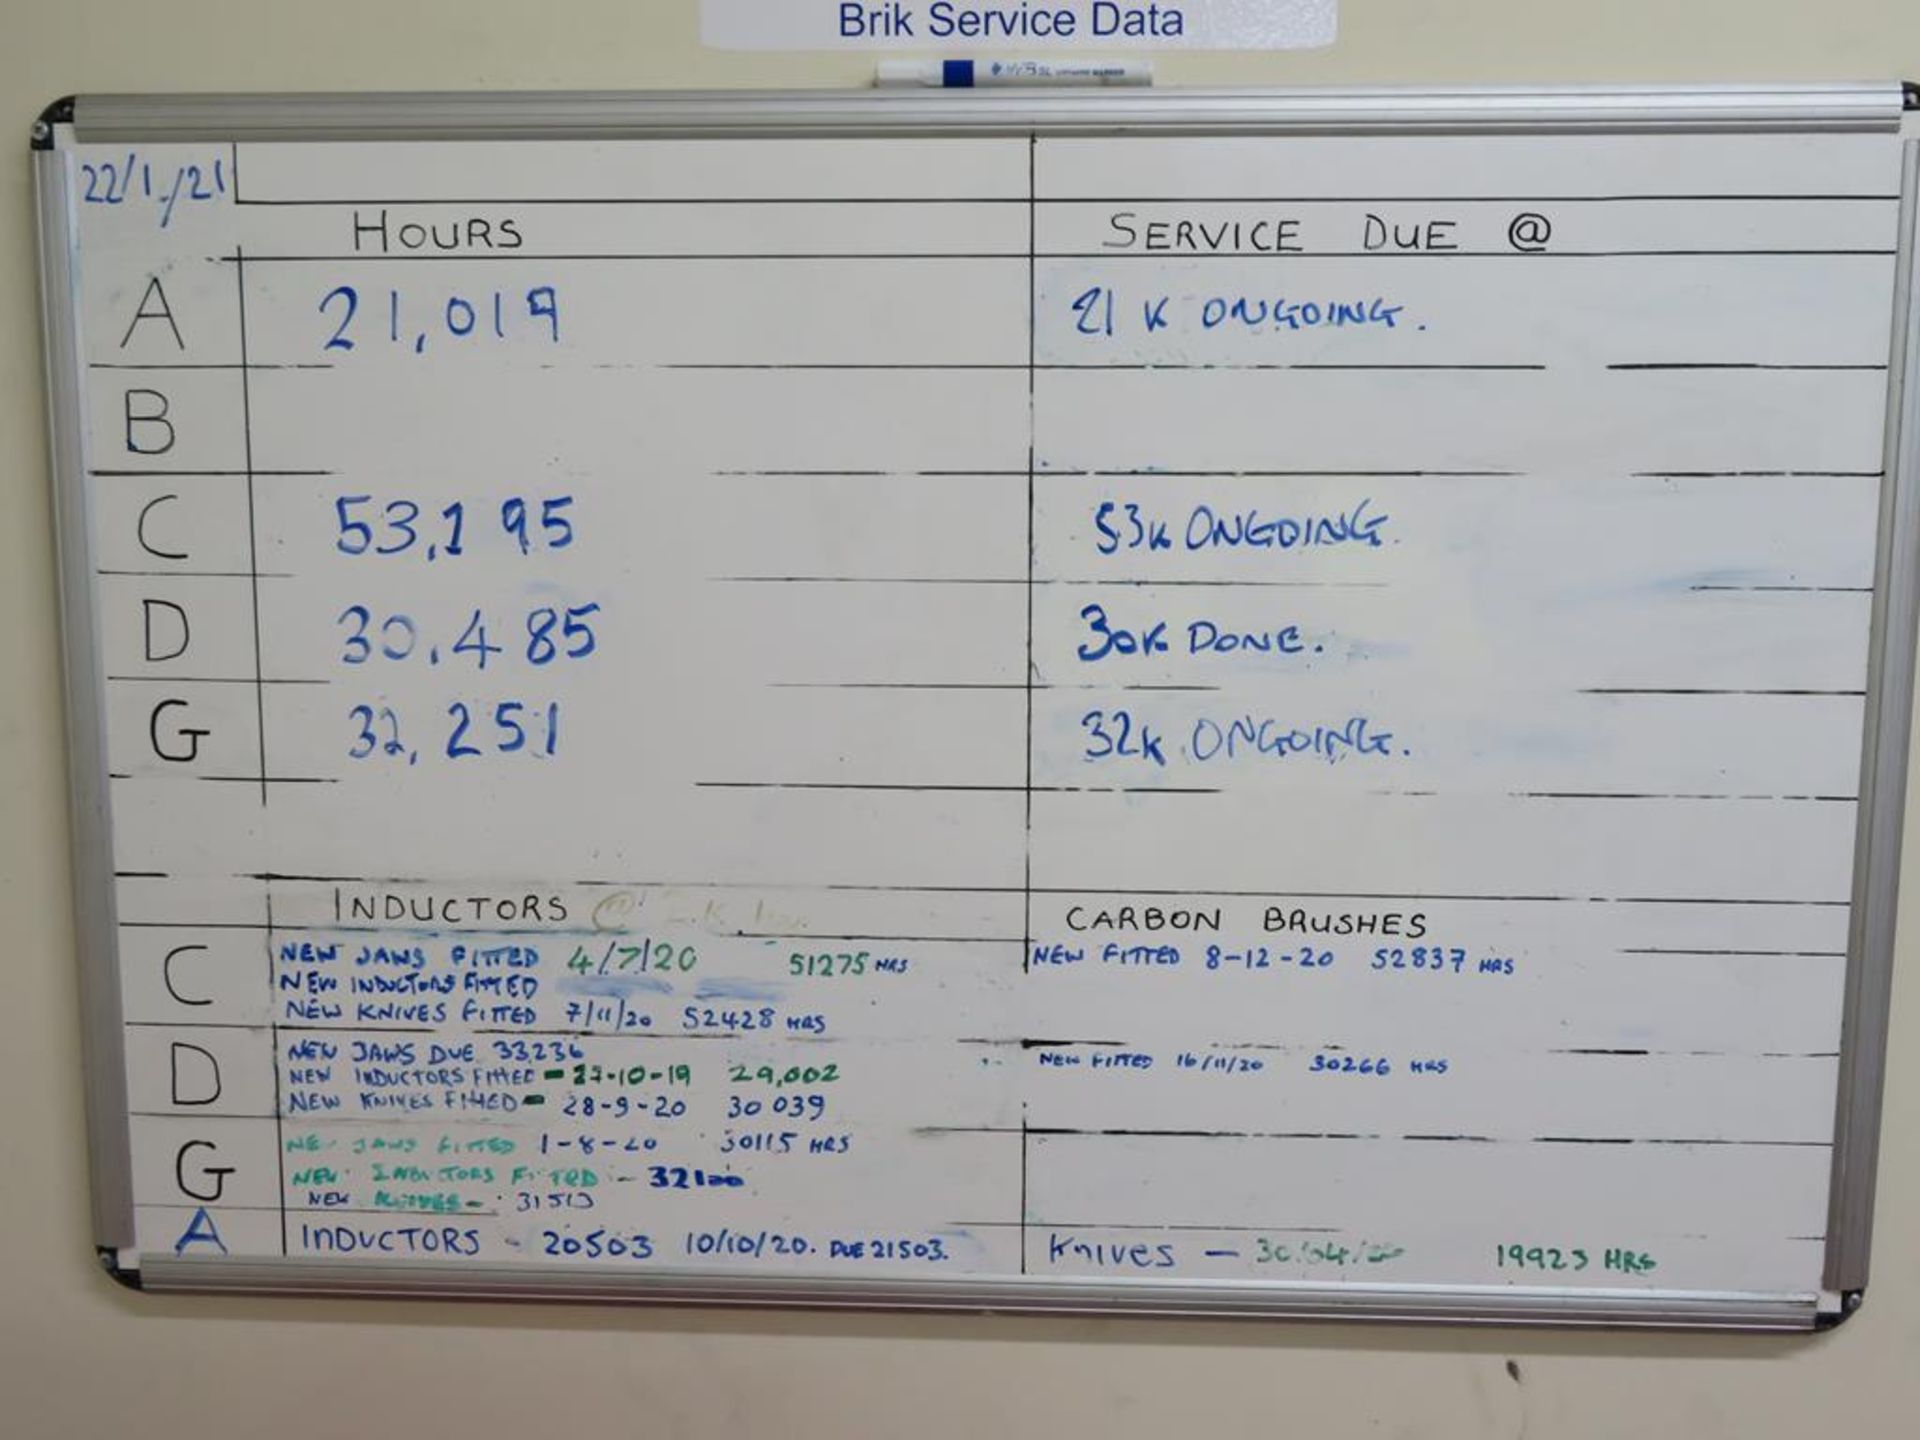 Brik Service Data
22/1/21
HOURS SERVICE DUE @
A 21,019 21 K ONGOING.
B
C 53,195 53K ONGOING.
D 30,485 30K DONE.
G 32,251 32K ONGOING.
INDUCTORS @ CARBON BRUSHES
C NEW JAWS FITTED 4/7/20 51275 HRS NEW FITTED 8-12-20 52837 HRS
NEW INDUCTORS FITTED
NEW KNIVES FITTED 7/11/20 52428 HRS
D NEW JAWS DUE 33,236 NEW FITTED 16/11/20 30266 HRS
NEW INDUCTORS FITTED - 27-10-19 29,002
NEW KNIVES FITTED - 28-9-20 30 039
G NEW JAWS FITTED 1-8-20 30115 HRS
NEW INDUCTORS FITTED - 32100
NEW KNIVES - 31513
A INDUCTORS - 20503 10/10/20. DUE 21503. Knives - 30/04/20 19923 HRS